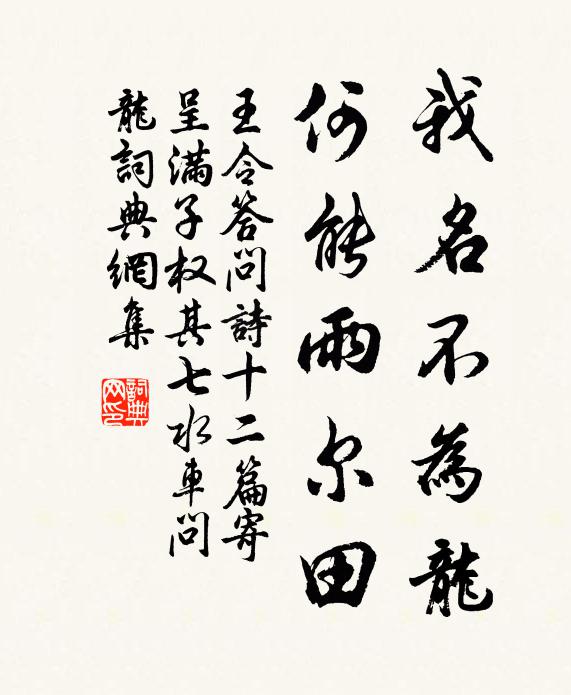 我名不為龍
何能雨尔田
王令答問詩十二篇寄
呈滿子权其七水車問
龍詞典網集
詞典网印